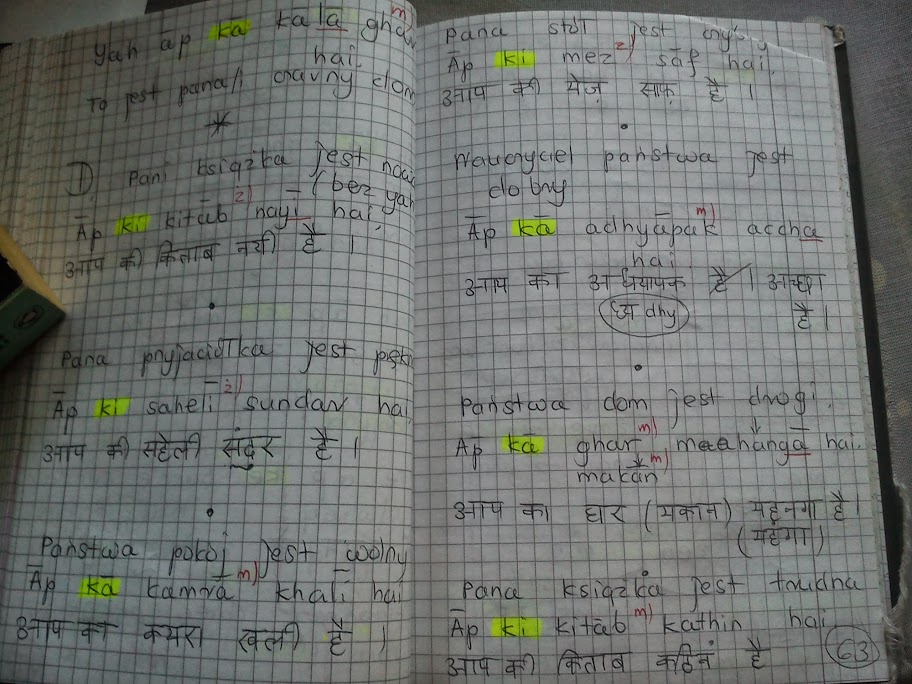 Yah āp ka kālā ghar m)
hai.
To jest pana/i czarny dom
Pani książka jest
(bez yah
Āp ki kitāb ż) nayī hai.
आप की किताब नयी है ।
Pana przyjaciółka jest
Āp ki sahelī ż) sundar hai
आप की सहेली सुंदर है ।
Państwa pokój jest wolny
Āp kā kamrā m) khālī hai
आप का कमरा खली है ।
Pana stół jest czysty
Āp ki mez ż) sāf hai.
आप की मेज़ साफ़ है ।
Nauczyciel państwa jest
dobry
Āp kā adhyāpak m) acchā
hai
आप का अध्यापक है । अच्छा
ध्य dhy है ।
Państwa dom jest drogi.
Āp kā ghar m) mahangā hai.
makān m)
आप का घर (मकान) महनगा है ।
(महंगा)
Pana książka jest trudna
Āp ki kitāb m) kathin hai
आप की किताब कठिन है
63